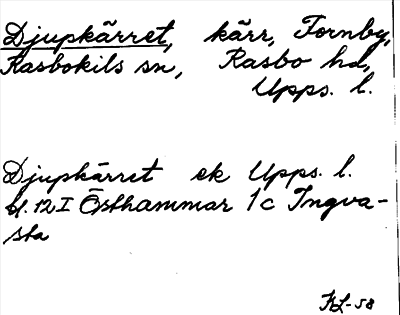 Djupkärret, kärr, Fornby,
Rasbokils sn, Rasbo hd,
Upps. l.
Djupkärret ek Upps. l.
bl. 12 I Östhammar 1c Ingva-
sta
KL-58